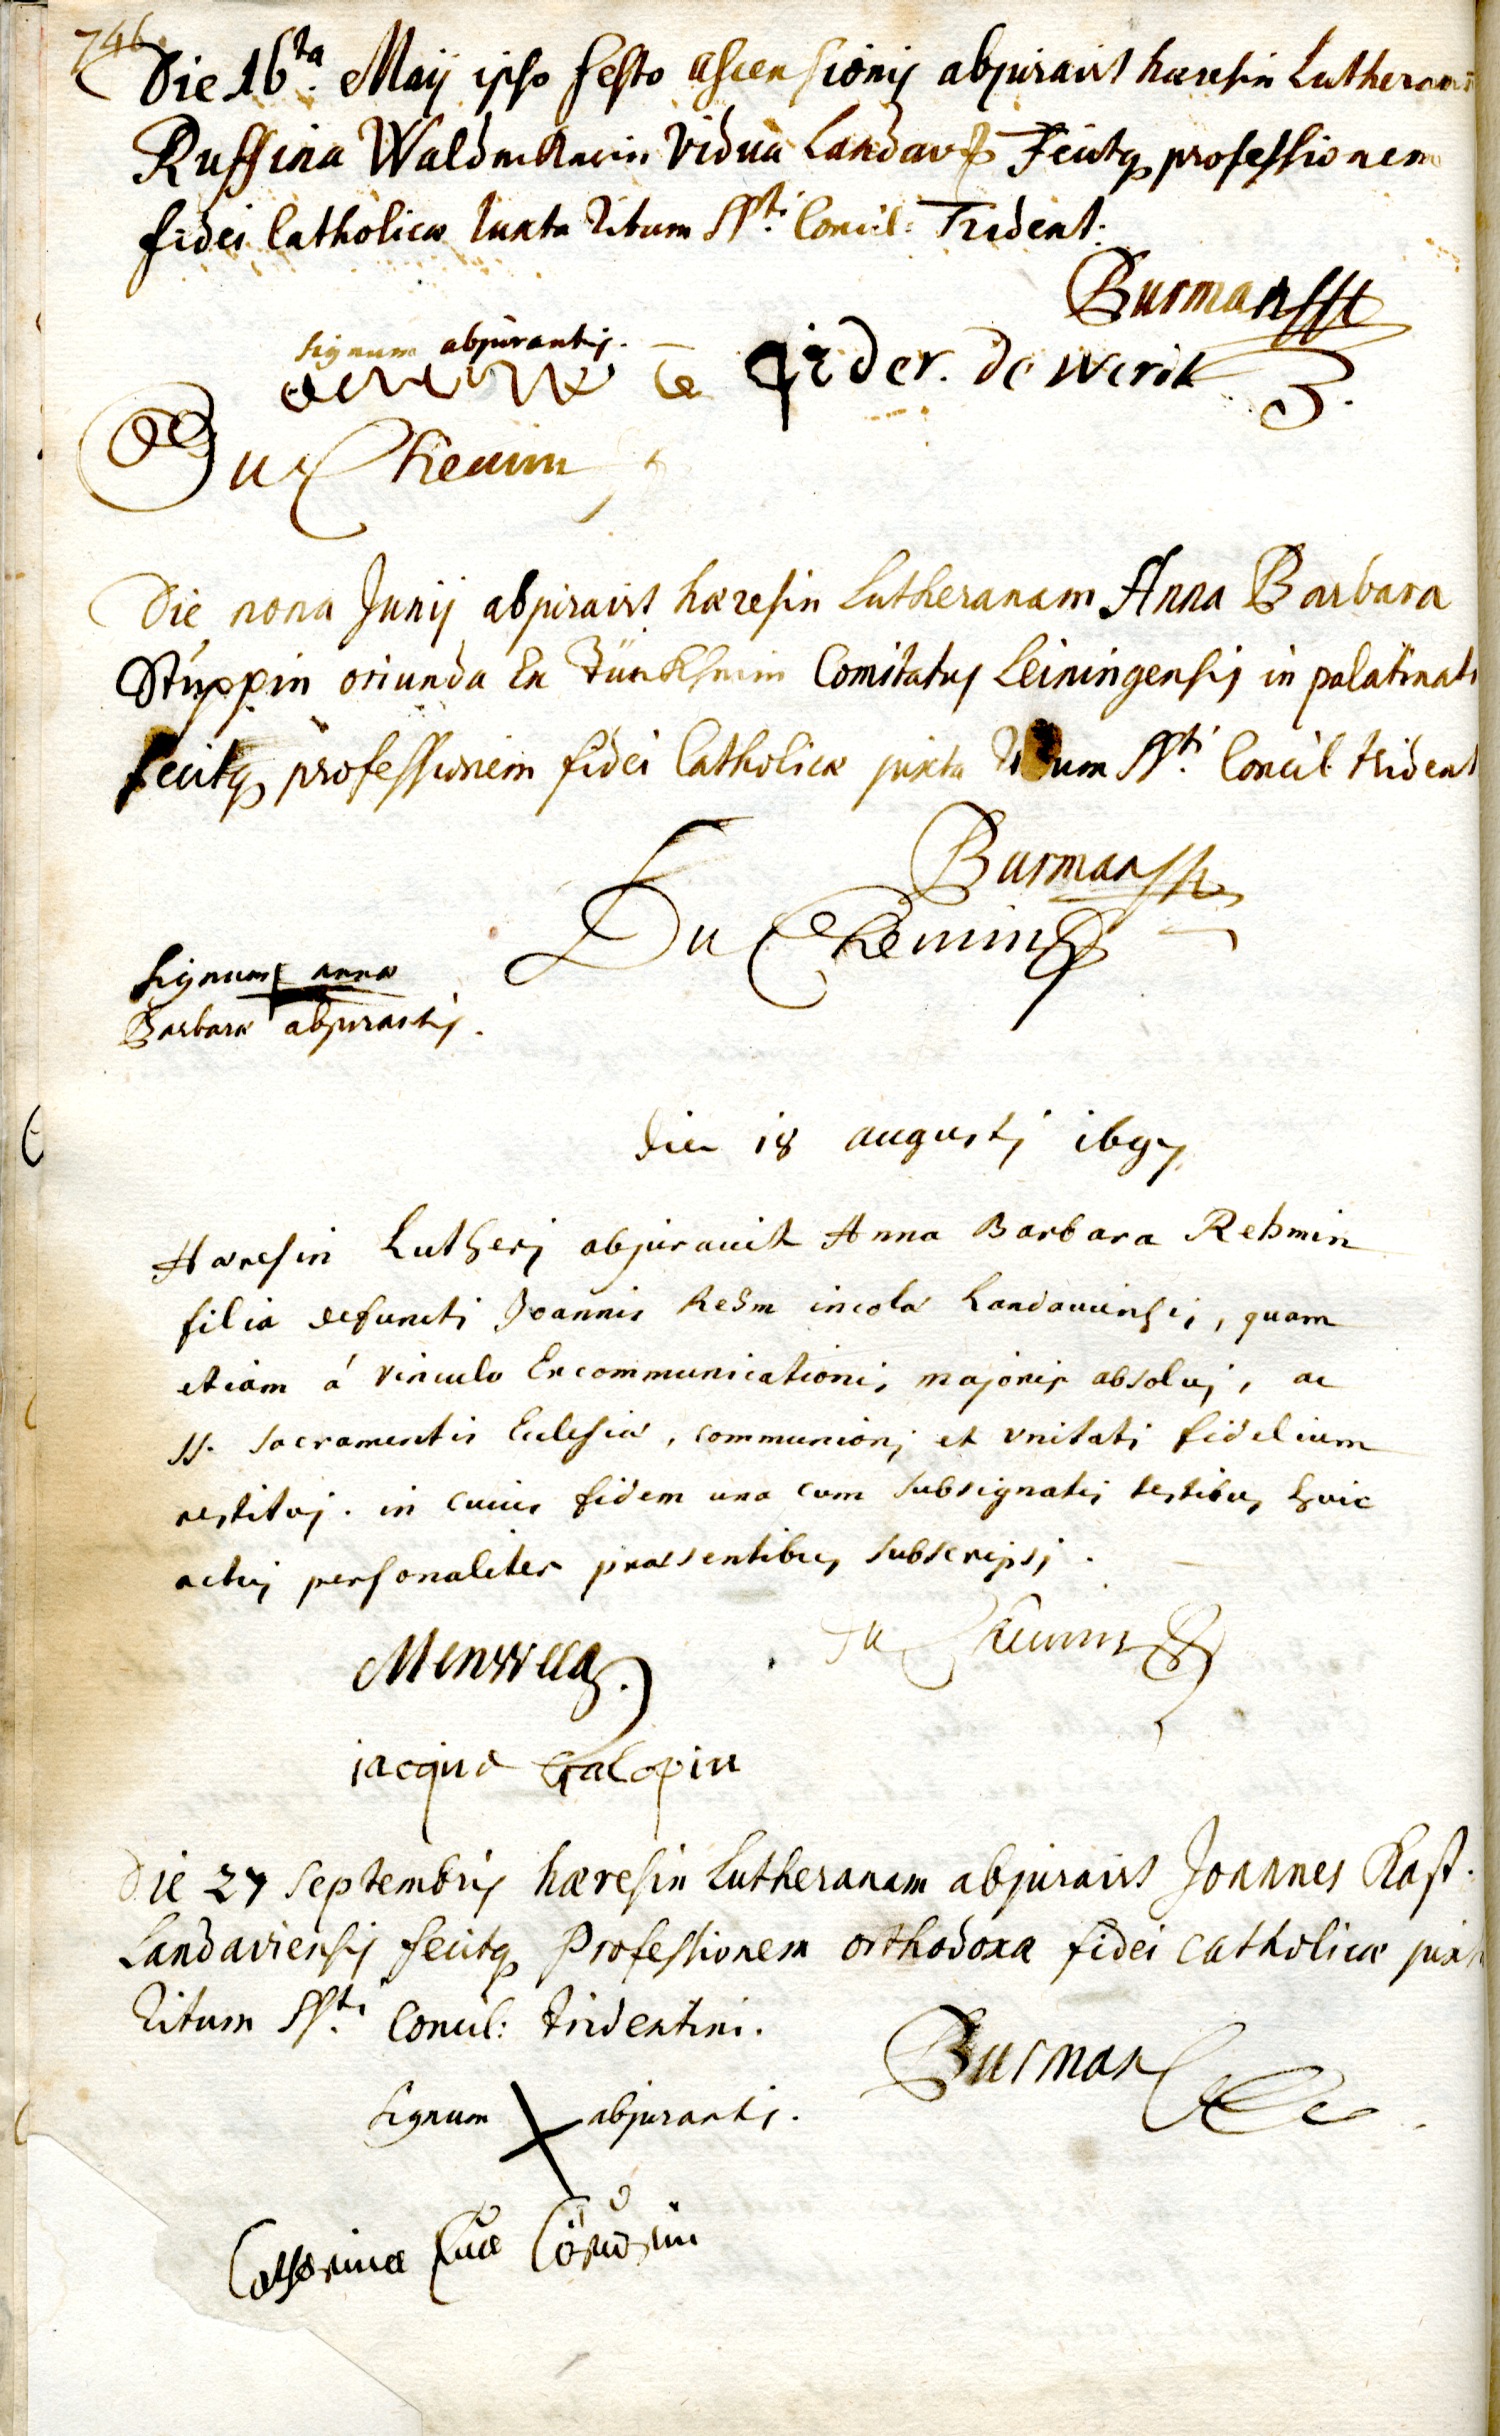 746.
Die 16ta. Maij ipso festo ascensionis abjuravit hæresin Lutheranam
Ruffina vidua Landav Fecitq professionem
fidei Catholicæ Iuxta Ritum SSti. Concil: Trident:
Burman
signum abjurantis.
de werik
Du Chemin
Die nona Junij abjuravit hæresin Lutheranam Anna Barbara
Stuppin oriunda Ex Türckheim Comitatus Leiningensis in palatinatu
fecitq professionem fidei Catholicæ juxta Ritum SSti. Concil trident
Burman
Du Chemin
signum annæ
Barbaræ abjurantis.
die 18 augusti 1697
Hæresin Lutheri abjuravit Anna Barbara Rehmin
filia defuncti Joannis Rehm incolæ Landauiensis, quam
etiam á vinculo Excommunicationis majoris absolvi, ac
SS. sacramentis Ecclesiæ, communioni et vnitati fidelium
restitui. in cuius fidem una cum subsignatis testibus huic
actui personaliter præsentibus subscripsi.
Du Chemin
jacque Galopin
Die 27 septembris hæresin Lutheranam abjuravit Joannes Rast.
Landaviensis fecitq Professionem orthodoxæ fidei catholicæ juxta
Ritum SSti. Concil: Tridentini.
Burman
signum abjurantis.
Catherina Eua